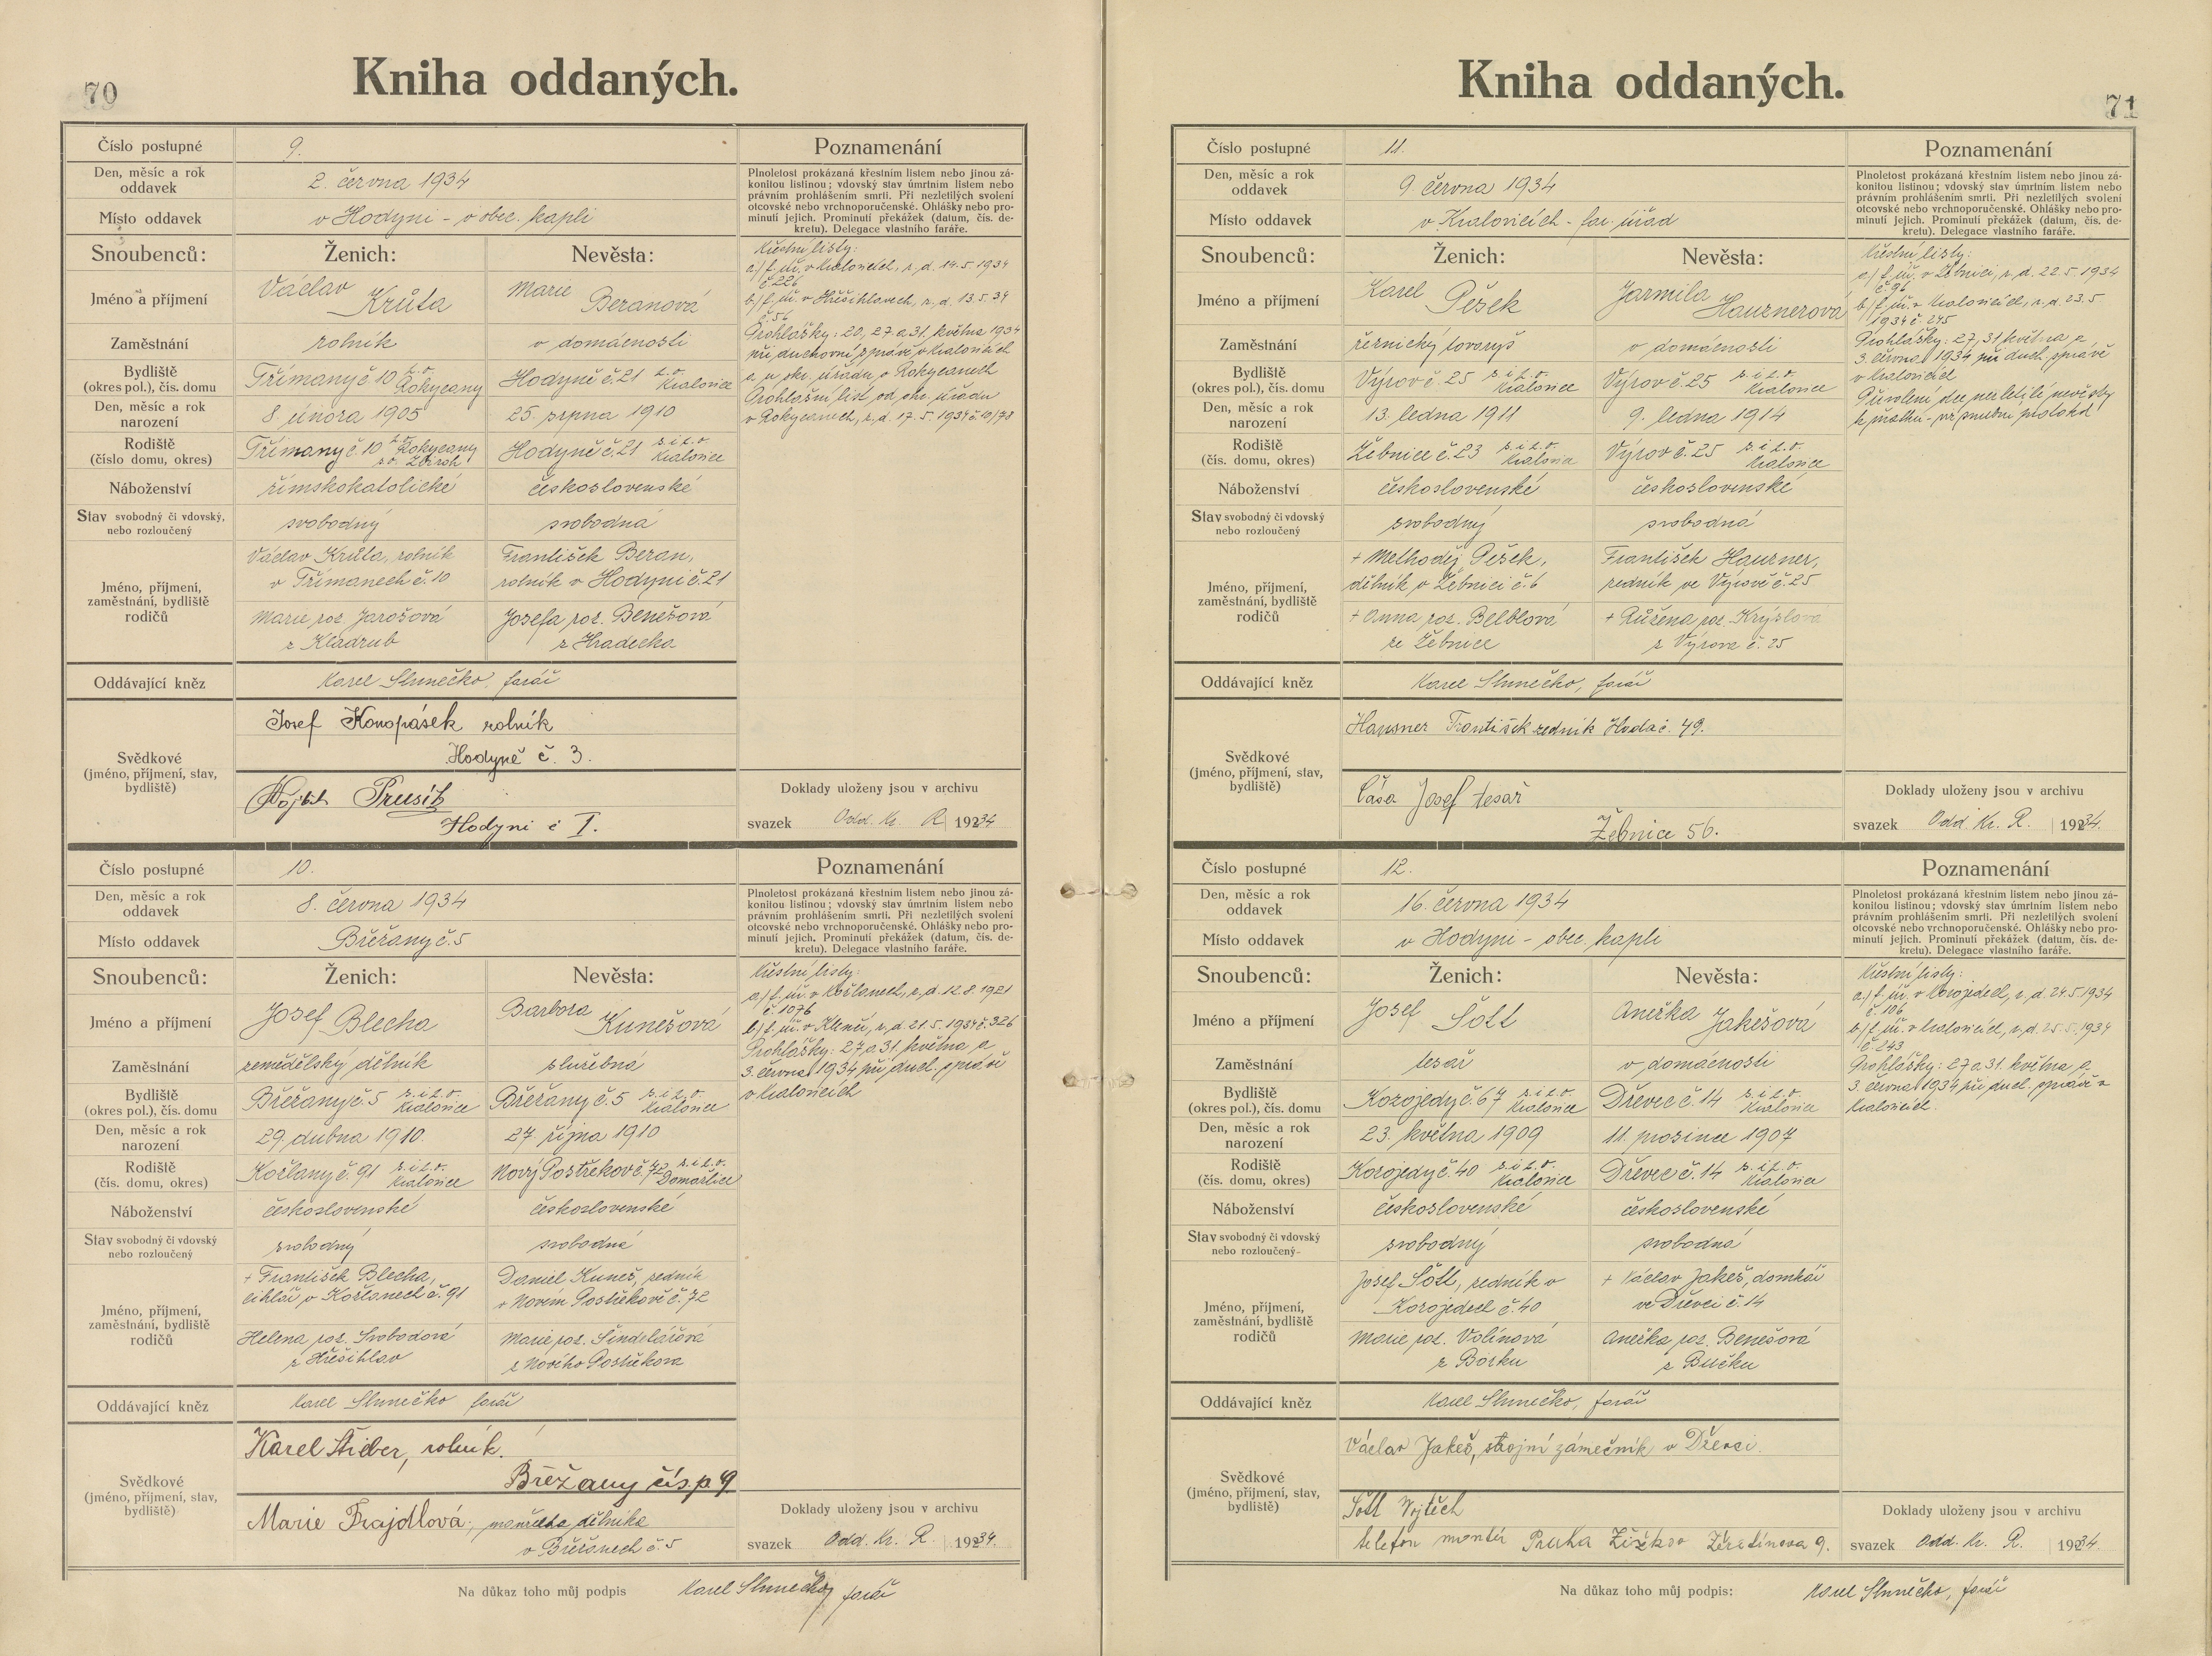 70
Kniha oddaných.
Číslo postupné 9. Poznamenání
Den, měsíc a rok oddavek 2. června 1934
Plnoletost prokázaná křestním listem nebo jinou zá-
konitou listinou; vdovský stav úmrtním listem nebo
právním prohlášením smrti. Při nezletilých svolení
otcovské nebo vrchnoporučenské. Ohlášky nebo pro-
minutí jejich. Prominutí překážek (datum, čís. de-
kretu). Delegace vlastního faráře.
Místo oddavek v Hodyni - v obec. kapli
Snoubenců: Ženich: Nevěsta:
Jméno a příjmení Václav Krůta Marie Beranová
Zaměstnání rolník v domácnosti
Bydliště (okres pol.), čís. domu Třímany č 10 p. o. Rokycany Hodyně č. 21 p. o. Kralovice
Den, měsíc a rok narození 8. února 1905 25. srpna 1910
Rodiště (číslo domu, okres) Třímany č 10 p. o. Rokycany s. o. Zbiroh Hodyně č. 21 s. i p. o. Kralovice
Náboženství římskokatolické československé
Stav svobodný či vdovský, nebo rozloučený svobodný svobodná
Jméno, příjmení, zaměstnání, bydliště rodičů
Václav Krůta, rolník
v Třímanech č. 10
František Beran,
rolník v Hodyni č. 21
Marie roz. Jarošová
z Kladrub
Josefa roz. Benešová
z Hradecka
Křestní listy:
a) f. úř. v Kralovicích, z. d. 14. 5. 1934
č. 226
b) f. úř. v Hřešihlavech, z. d. 13. 5. 34
č. 56
Prohlášky: 20., 27. a 31. května 1934
při duchovní správě v Kralovicích
a u okr. úřadu v Rokycanech
Prohlašní list od okr. úřadu
v Rokycanech, z. d. 17. 5. 1934 č. 10/78
Oddávající kněz Karel Slunečko, farář
Svědkové (jméno, příjmení, stav, bydliště)
Josef Konopásek rolník
Hodyně č. 3.
Vojtěch Prusík
Hodyni č I.
Doklady uloženy jsou v archivu
svazek Odd. Kr. R. 1934
Číslo postupné 10. Poznamenání
Den, měsíc a rok oddavek 8. června 1934
Plnoletost prokázaná křestním listem nebo jinou zá-
konitou listinou; vdovský stav úmrtním listem nebo
právním prohlášením smrti. Při nezletilých svolení
otcovské nebo vrchnoporučenské. Ohlášky nebo pro-
minutí jejich. Prominutí překážek (datum, čís. de-
kretu). Delegace vlastního faráře.
Místo oddavek Břežany č. 5
Snoubenců: Ženich: Nevěsta:
Jméno a příjmení Josef Blecha Barbora Kunešová
Zaměstnání zemědělský dělník služebná
Bydliště (okres pol.), čís. domu Břežany č. 5 s. i p. o. Kralovice Břežany č. 5 s. i p. o. Kralovice
Den, měsíc a rok narození 29. dubna 1910. 27. října 1910
Rodiště (čís. domu, okres) Kožlany č. 91 s. i p. o. Kralovice Nový Postřekov č. 72 s. i p. o. Domažlice
Náboženství československé československé
Stav svobodný či vdovský nebo rozloučený svobodný svobodná
Jméno, příjmení, zaměstnání, bydliště rodičů
+ František Blecha,
cihlář v Kožlanech č. 91
Daniel Kuneš, zedník
v Novém Postřekově č. 72
Helena roz. Svobodová
z Hřešihlav
Marie roz. Šindelářová
z Nového Postřekova
Křestní listy:
a) f. úř. v Kožlanech, z. d. 12. 8. 1921
č. 1076
b) f. úř. v Klenčí, z. d. 21. 5. 1934 č. 326
Prohlášky: 27. a 31. května a
3. června 1934 při duch. správě
v Kralovicích
Oddávající kněz Karel Slunečko farář
Svědkové (jméno, příjmení, stav, bydliště)
Karel Stieber, rolník.
Břežany čís. p. 9
Marie Frajdlová, manželka dělníka
v Břežanech č. 5
Doklady uloženy jsou v archivu
svazek Odd. Kr. R. 1934.
Na důkaz toho můj podpis Karel Slunečko, farář
71
Kniha oddaných.
Číslo postupné 11. Poznamenání
Den, měsíc a rok oddavek 9. června 1934
Plnoletost prokázaná křestním listem nebo jinou zá-
konitou listinou; vdovský stav úmrtním listem nebo
právním prohlášením smrti. Při nezletilých svolení
otcovské nebo vrchnoporučenské. Ohlášky nebo pro-
minutí jejich. Prominutí překážek (datum, čís. de-
kretu). Delegace vlastního faráře.
Místo oddavek v Kralovicích - far. úřad
Snoubenců: Ženich: Nevěsta:
Jméno a příjmení Karel Pešek Jarmila Hausnerová
Zaměstnání řeznický tovaryš v domácnosti
Bydliště (okres pol.), čís. domu Výrov č. 25 s. i p. o. Kralovice Výrov č. 25 s. i p. o. Kralovice
Den, měsíc a rok narození 13. ledna 1911 9. ledna 1914
Rodiště (čís. domu, okres) Žebnice č. 23 s. i p. o. Kralovice Výrov č. 25 s. i p. o. Kralovice
Náboženství československé československé
Stav svobodný či vdovský nebo rozloučený svobodný svobodná
Jméno, příjmení, zaměstnání, bydliště rodičů
+ Methoděj Pešek,
dělník v Žebnici č. 6
František Hausner,
zedník ve Výrově č. 25
+ Anna roz. Belblová
ze Žebnice
+ Růžena roz. Krýslova
z Výrova č. 25
Křestní listy:
a) f. úř. v Žebnici, z. d. 22. 5. 1934
č. 96
b) f. úř. v Kralovicích, z. d. 23. 5
1934 č. 245
Prohlášky: 27., 31 května a
3. června 1934 při duch. správě
v Kralovicích
Přivolení otce nezletilé nevěsty
k sňatku - viz snubní protokol
Oddávající kněz Karel Slunečko, farář
Svědkové (jméno, příjmení, stav, bydliště)
Hausner František zedník č. 49.
Čása Josef tesař
Žebnice 56.
Doklady uloženy jsou v archivu
svazek Odd. Kr. R. 1934.
Číslo postupné 12. Poznamenání
Den, měsíc a rok oddavek 16. června 1934
Plnoletost prokázaná křestním listem nebo jinou zá-
konitou listinou; vdovský stav úmrtním listem nebo
právním prohlášením smrti. Při nezletilých svolení
otcovské nebo vrchnoporučenské. Ohlášky nebo pro-
minutí jejich. Prominutí překážek (datum, čís. de-
kretu). Delegace vlastního faráře.
Místo oddavek v Hodyni - obec. kapli
Snoubenců: Ženich: Nevěsta:
Jméno a příjmení Josef Šótl Anežka Jakešová
Zaměstnání tesař v domácnosti
Bydliště (okres pol.), čís. domu Kozojedy č. 67 s. i p. o. Kralovice Dřevec č. 14 s. i p. o. Kralovice
Den, měsíc a rok narození 23. května 1909 11. prosince 1907
Rodiště (čís. domu, okres) Kozojedy č. 40 s. i p. o. Kralovice Dřevec č. 14 s. i p. o. Kralovice
Náboženství československé československé
Stav svobodný či vdovský nebo rozloučený svobodný svobodná
Jméno, příjmení, zaměstnání, bydliště rodičů
Josef Šótl, zedník v
Kozojedech č. 40
+ Václav Jakeš, domkář
ve Dřevci č. 14
Marie roz. Volínová
z Borku
Anežka roz. Benešová
z Bučku
Křestní listy:
a) f. úř. v Kozojedech, z. d. 24. 5 1934
č. 106
b) f. úř. v Kralovicích, z. d. 25. 5. 1934
č. 243
Prohlášky: 27 a 31. května a
3. června 1934 při duch. správě v
Kralovicích.
Oddávající kněz Karel Slunečko, farář
Svědkové (jméno, příjmení, stav, bydliště)
Václav Jakeš, strojní zámečník v Dřevci.
Šótl Vojtěch
telefon montér Praha Žižkov Žerotínova 9.
Doklady uloženy jsou v archivu
svazek Odd. Kr. R. 1934.
Na důkaz toho můj podpis: Karel Slunečko, farář